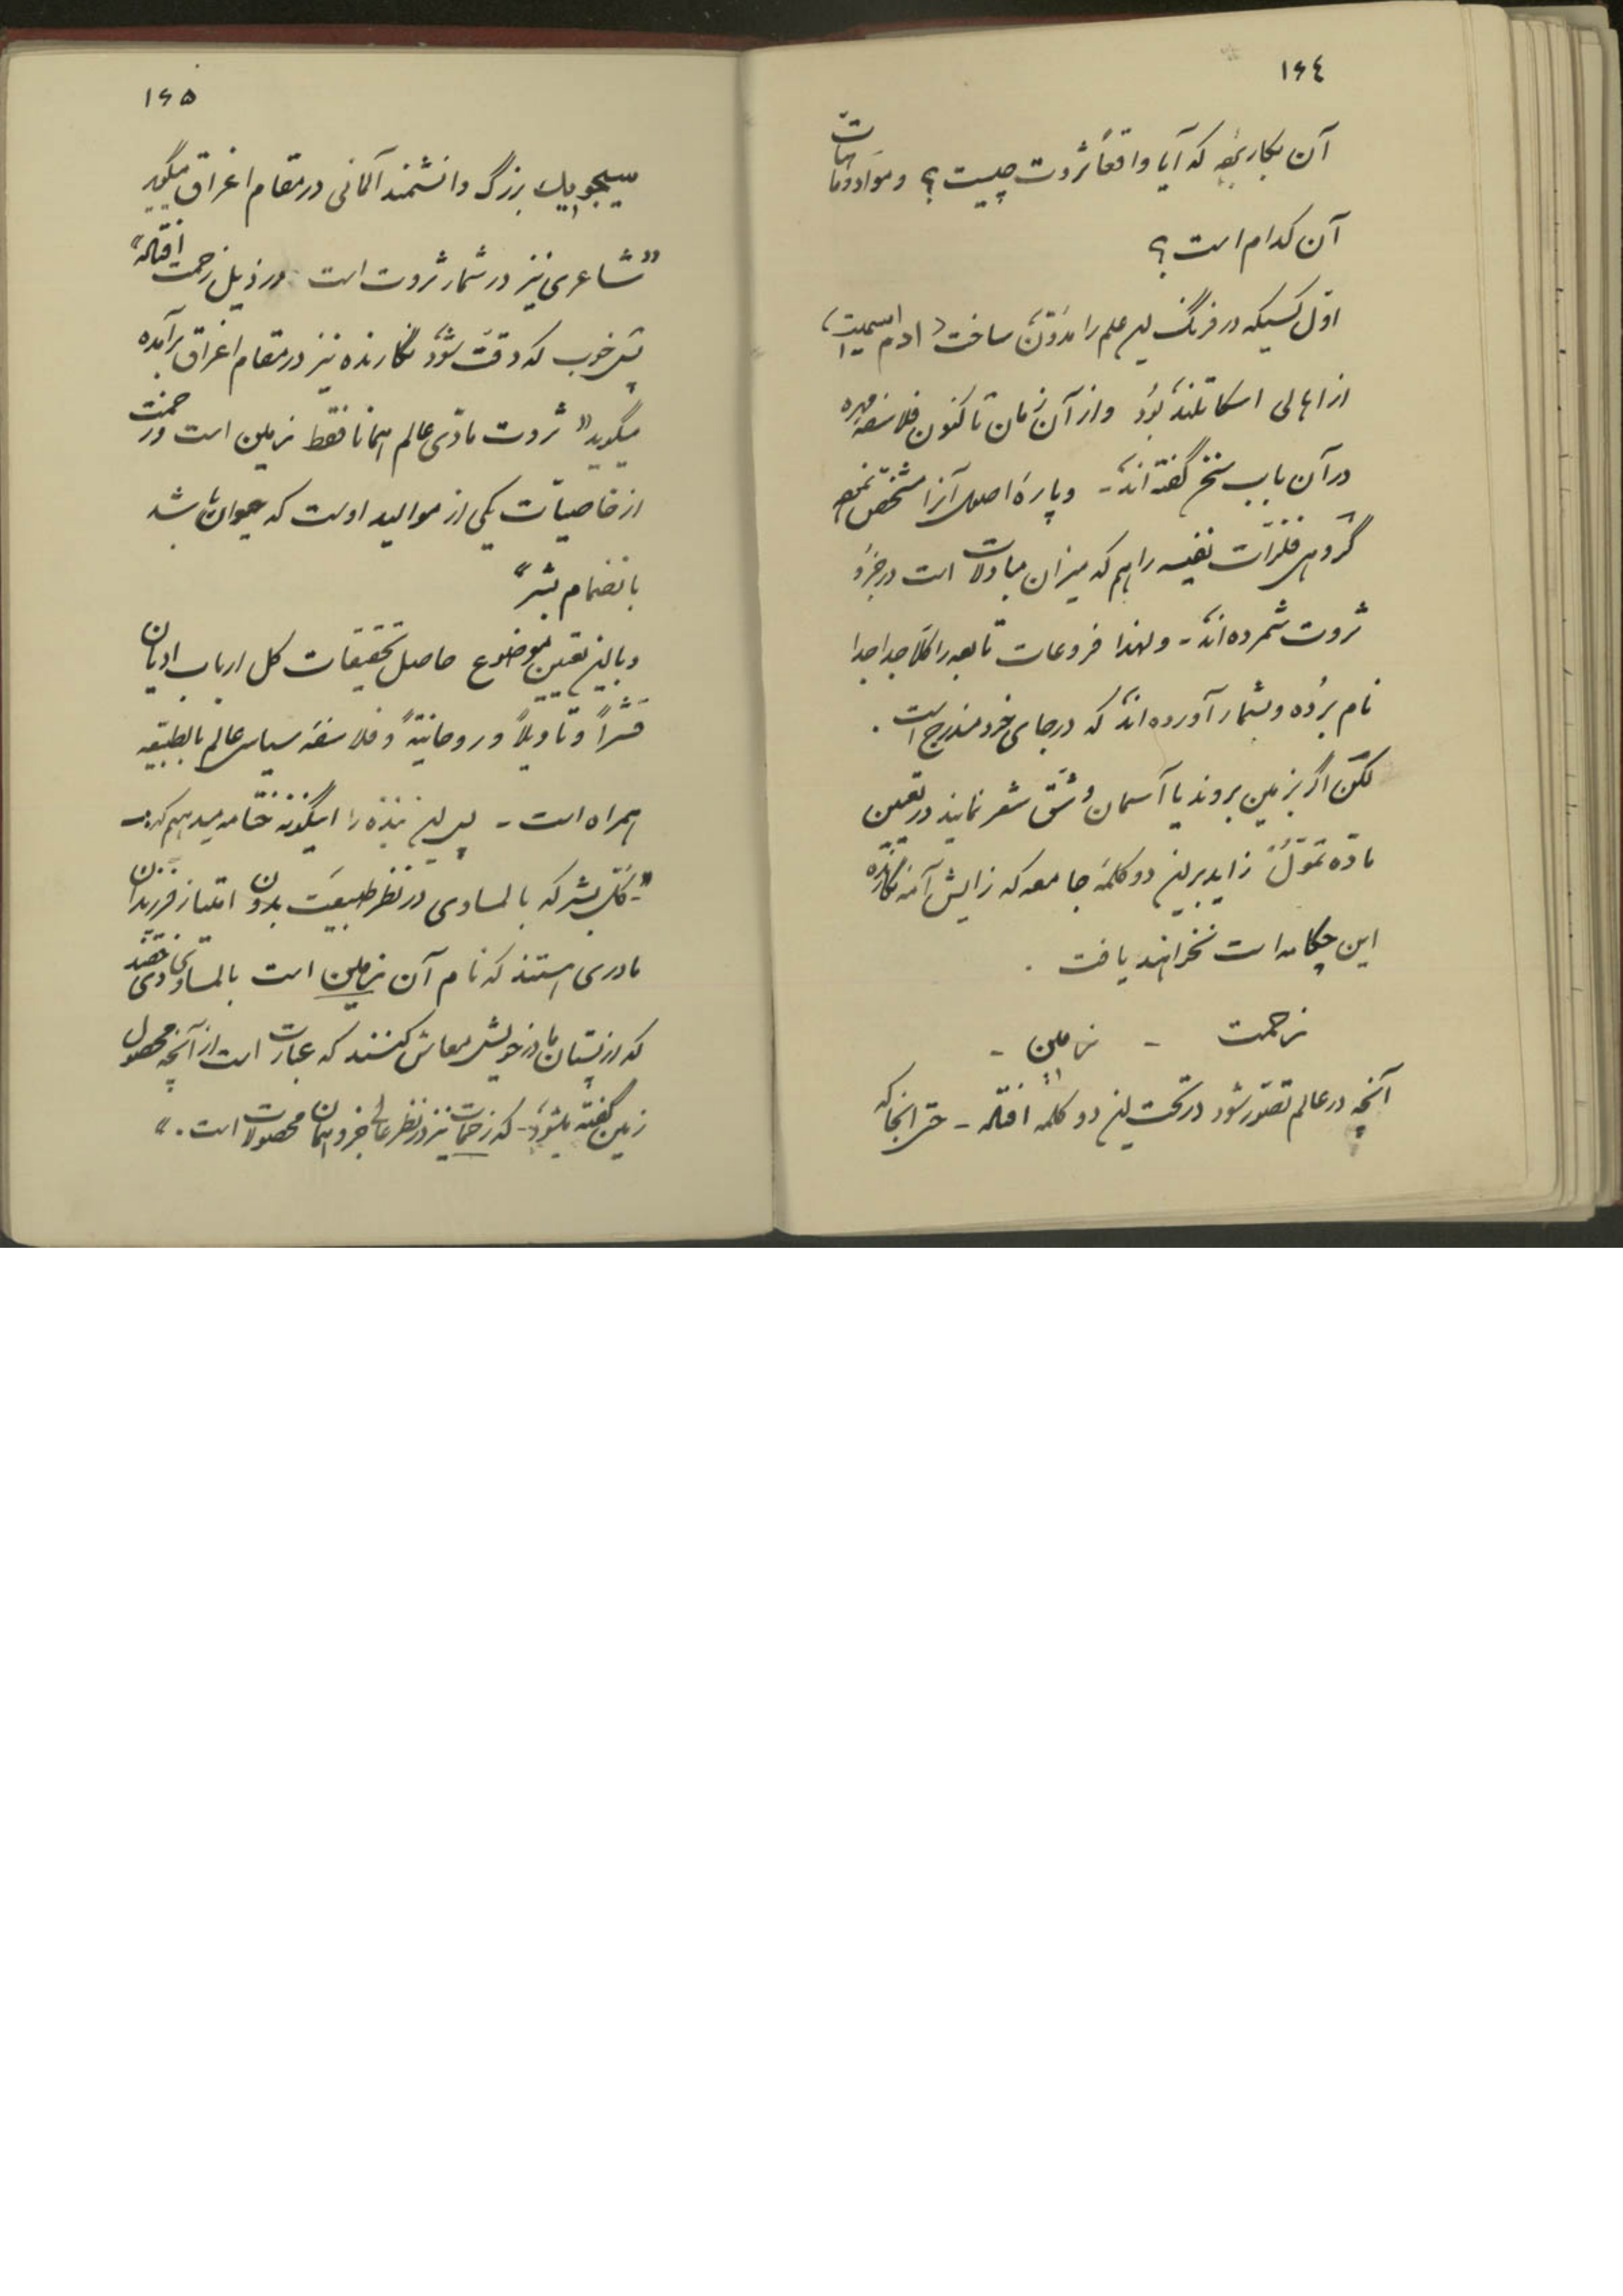 ۱۶٤
آن بکار رفته که آیا واقعاً ثروت چیست؟ و مواد و مآت
آن کدام است؟
اوّل کسیکه در فرنگ این علم را مدوّن ساخت «ادم اسمیت»
از اهالی اسکاتلند بود و از آن زمان تا کنون فلاسفه مهره
در آن باب سخن گفته‌اند - و پارهٔ اصول آنرا مشخّص نموده
گروهی فلزّات نفیسه را هم که میزان مبادلات است در جزو
ثروت شمرده‌اند - ولهذا فروعات تابعه را کلاً جدا جدا
نام برده و بشمار آورده‌اند که در جای خود مندرج است .
لکن اگر بزمین بروند یا آسمان و شقّ شعر نمایند در تعیین
مادّه تموّل زاید بر این دو کلمهٔ جامعه که زایش آمهٔ نگارنده
این چکامه است نخواهند یافت .
زحمت - زمین -
آنچه در عالم تصوّر شود در تحت این دو کلمه افتاده - حتی انجا که
۱۶۵
سیجویک بزرگ دانشمند آلمانی در مقام اغراق میگوید
«شاعری نیز در شمار ثروت است در ذیل زحمت افتاده»
پس خوب که دقّت شود نگارنده نیز در مقام اغراق برآمده
میگوید «ثروت مادّی عالم همانا فقط زمین است و زحمت
از خاصیّات یکی از موالید اوست که حیوان باشد
بانضمام بشر»
و با این تعیین موضوع حاصل تحقیقات کل ارباب ادیان
قشراً و تأویلاً و روحانیّةً و فلاسفه سیاسی عالم بالطبیعه
همراه است - پس این نبذه را اینگونه ختامه میدهیم که :-
«- کلّ بشر که بالمساوی در نظر طبیعت بدون امتیاز فرزندان
مادری هستند که نام آن زمین است بالمساوی حقند
که از پستان مادر خویش معاش کنند که عبارت است از آنچه محصول
زمین گفته بشود - که زحمات نیز در نظر عالی جزو همان محصولات است . »